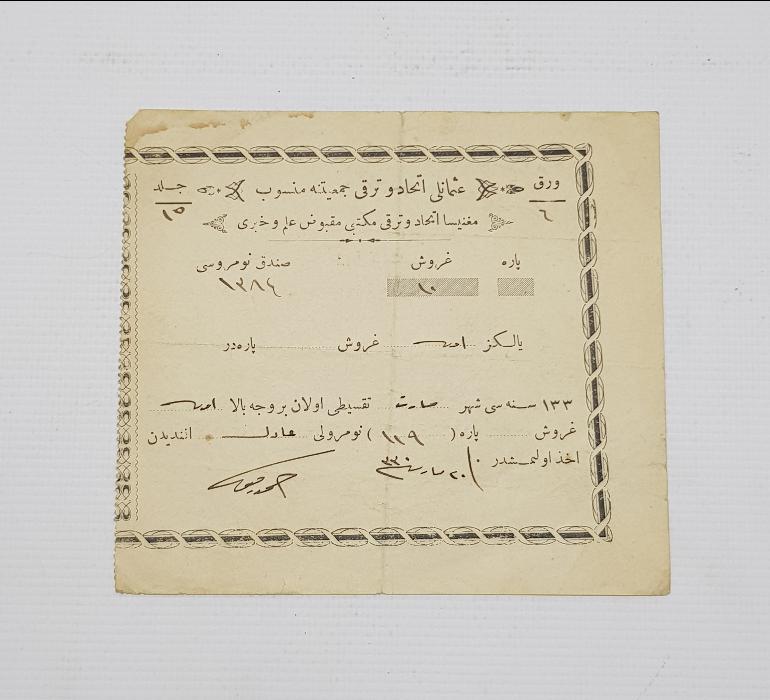 ورق
٦
عثمانلى اتحاد و ترقى جمعيتنه منسوب
جـلـد
١٥
مغنيسا اتحاد و ترقى مكتبى مقبوض علم و خبرى
پاره غروش صندق نومروسى
١٠ ١٣٨٤
يالـكـز اون غروش پاره در
١٣٣ سـنه سى شهر مارت تقسيطى اولان بر وجه بالا اون
غروش پاره ( ١١٩ ) نومرولى عادل افنديدن
اخذ اولنمـشدر ٢٠ مارت ٣٣٠